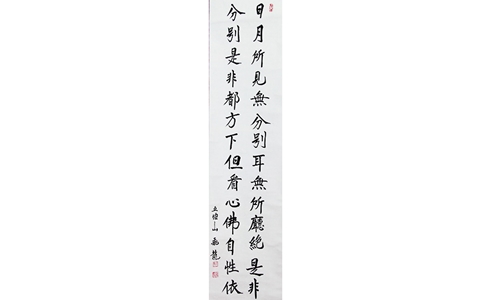 日月所見無分别耳無所廳絶是非
分别是非都方下但看心佛自性依
山 飛龍